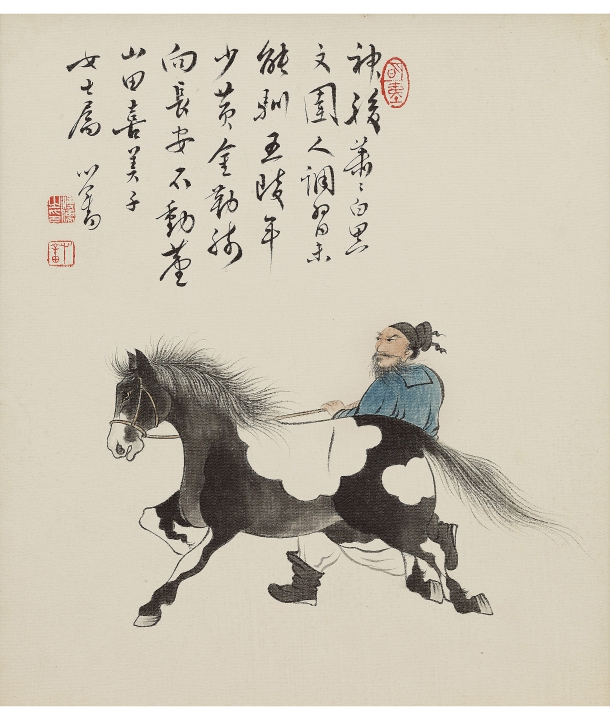 神駿蕭々白黑
文圉人調習未
能馴五陵年
少黃金勒騎
向長安不動塵
山田喜美子
女士屬
心畬